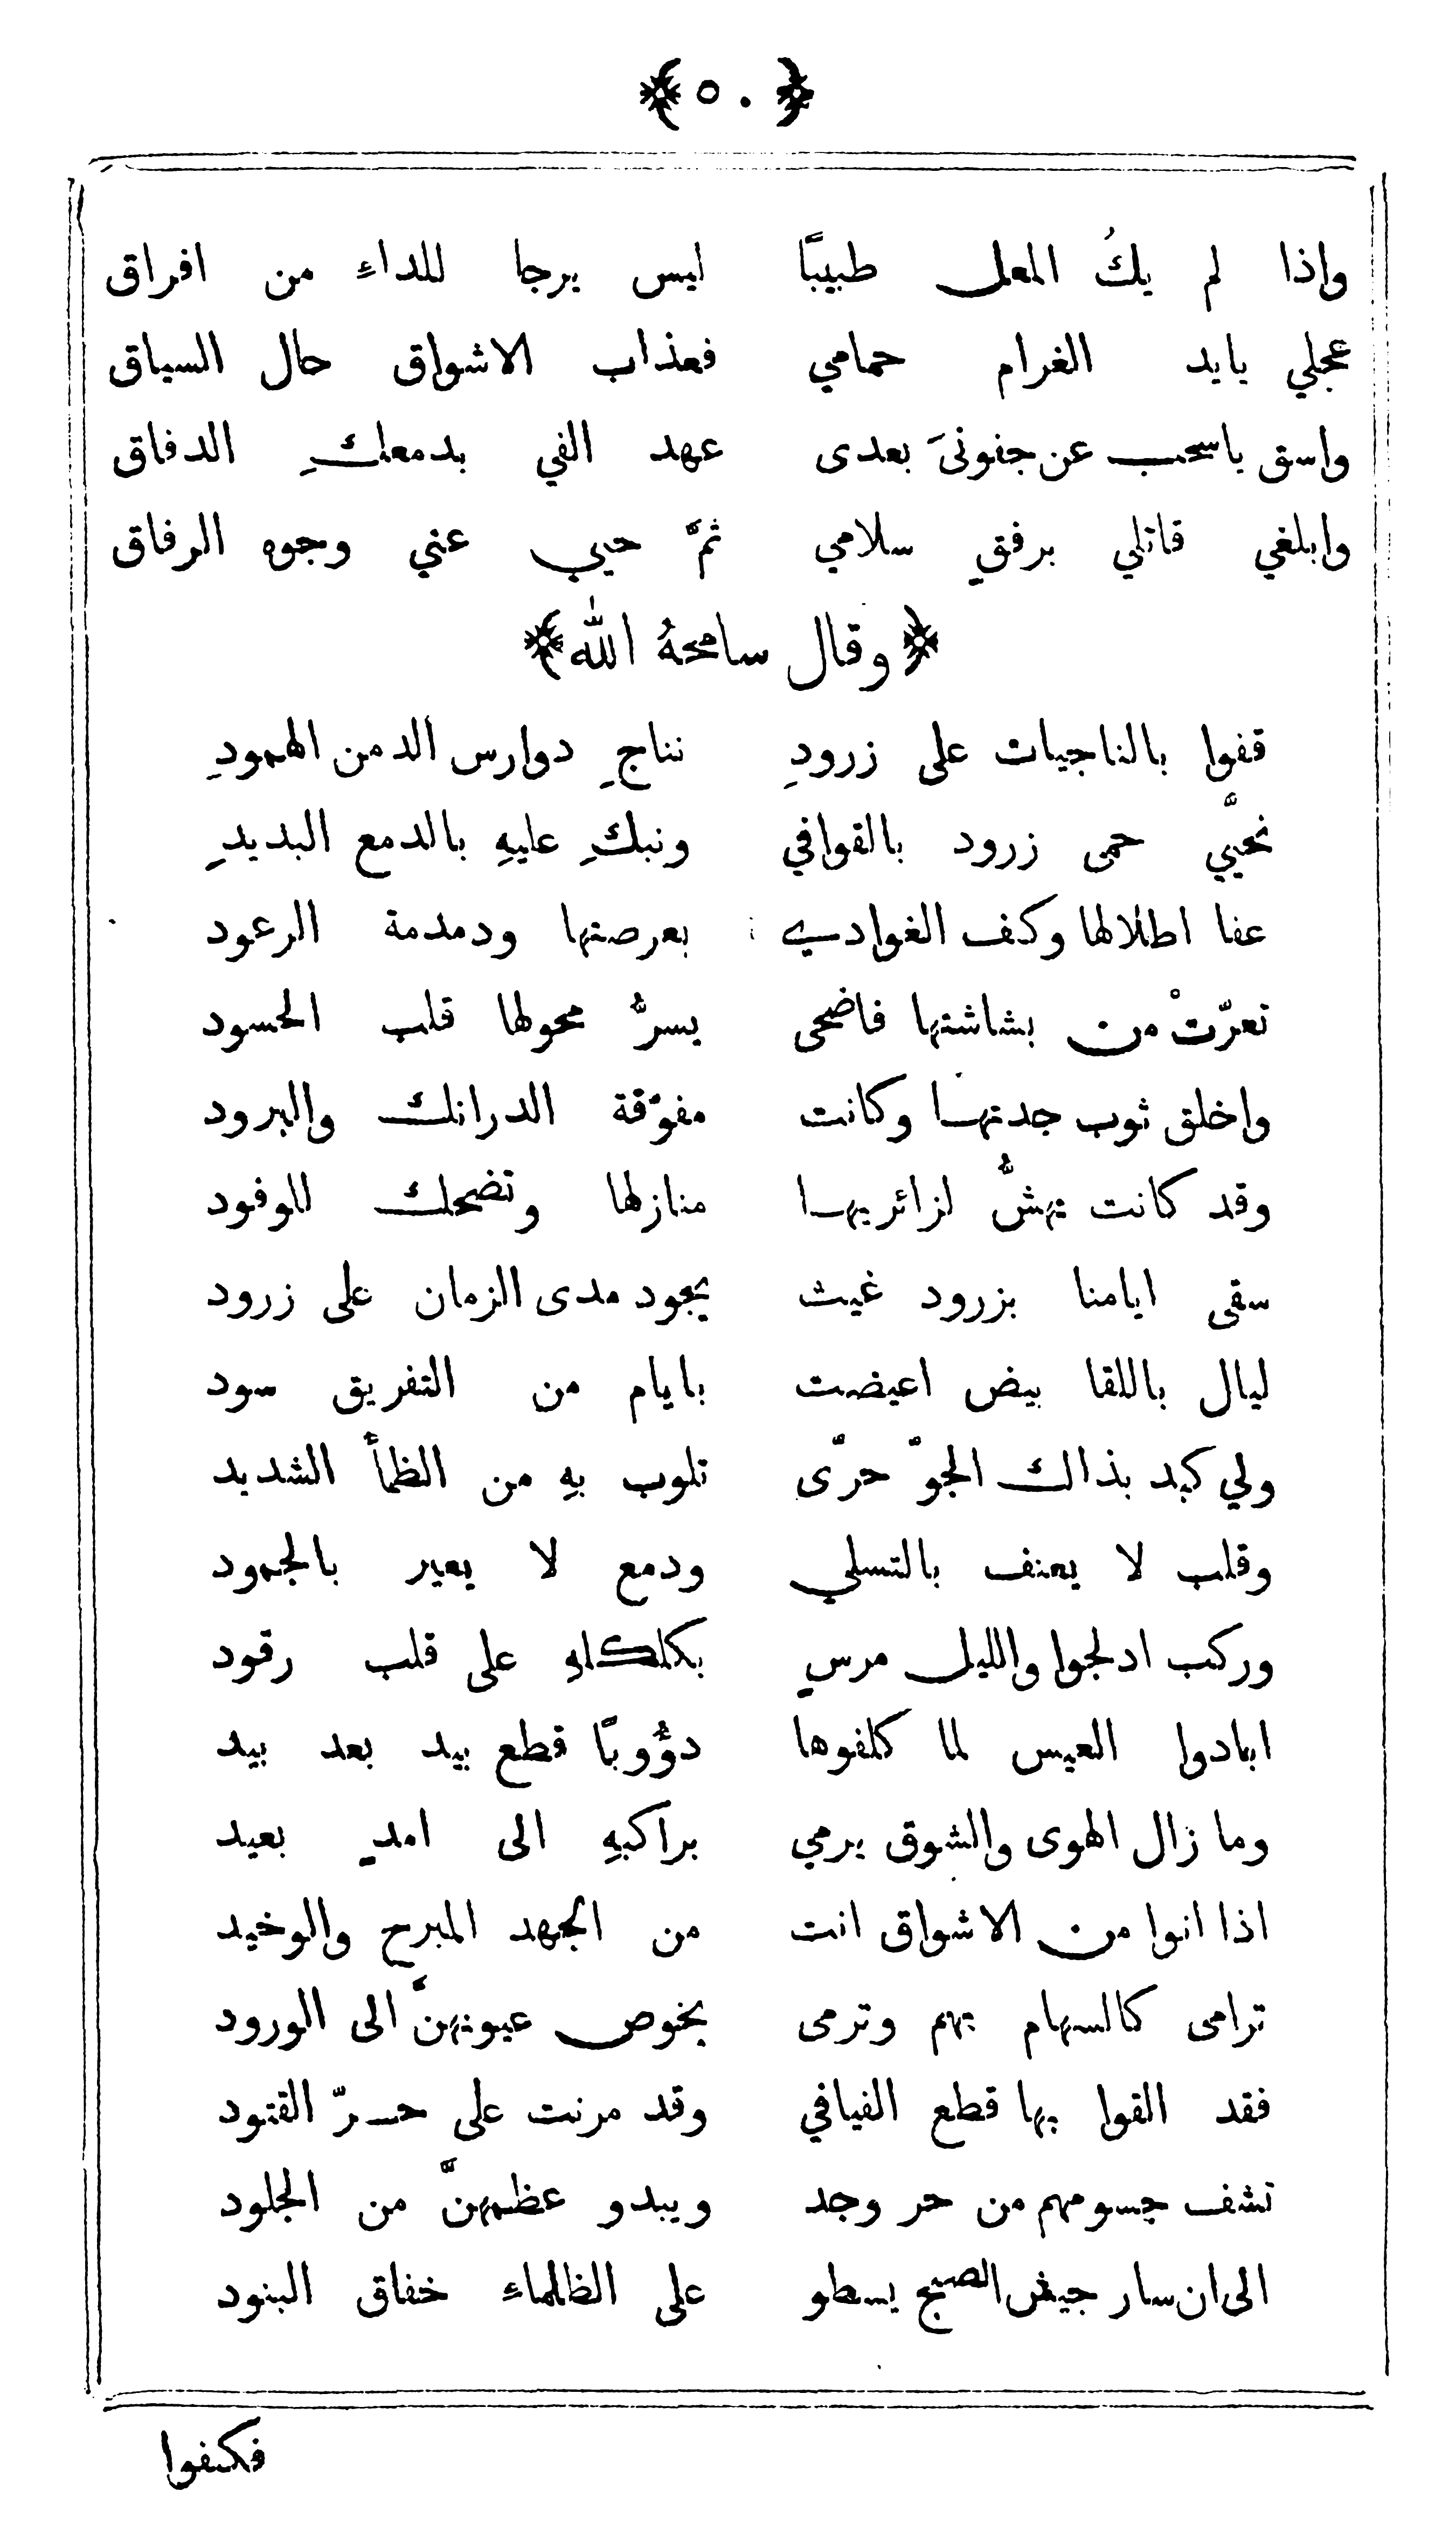 ﴿٥٠﴾
واذا لم يكُ المعل طبيبًا ليس يرجا للداءِ من افراق
عجلي يايد الغرام حمامي فعذاب الاشواق حال السياق
واسق ياسحب عن جفونيَ بعدى عهد الفي بدمعكِ الدفاق
وابلغي قاتلي برفقٍ سلامي ثمَّ حيي عني وجوه الرفاق
﴿وقال سامحهُ الله﴾
قفوا بالناجيات على زرودِ نناجِ دوارس الدمن الهمودِ
نحيّي حمى زرود بالقوافي ونبكِ عليهِ بالدمع البديدِ
عفا اطلالها وكف الغوادي بعرصتها ودمدمة الرعود
تعرّتْ من بشاشتها فاضحى يسرُّ محولها قلب الحسود
واخلق ثوب جدتها وكانت مفوّقة الدرانك والبرود
وقد كانت تهشُّ لزائريها منازلها وتضحك للوفود
سقى ايامنا بزرود غيث يجود مدى الزمان على زرود
ليال باللقا بيض اعيضت بايام من التفريق سود
ولي كبد بذاك الجوّ حرّى تلوب بهِ من الظمأ الشديد
وقلب لا يعنف بالتسلي ودمع لا يعير بالجمود
وركب ادلجوا والليل مرسٍ بكلكلهِ على قلب رقود
ابادوا العيس لما كلفوها دؤوبًا قطع بيد بعد بيد
وما زال الهوى والشوق يرمي براكبهِ الى امدٍ بعيد
اذا انوا من الاشواق انت من الجهد المبرح والوخيد
ترامى كالسهام بهم وترمى بخوص عيونهنَّ الى الورود
فقد القوا بها قطع الفيافي وقد مرنت على حرّ القتود
تشف جسومهم من حر وجد ويبدو عظمهنَّ من الجلود
الى ان سار جيش الصبح يسطو على الظلماءِ خفاق البنود
فكفوا